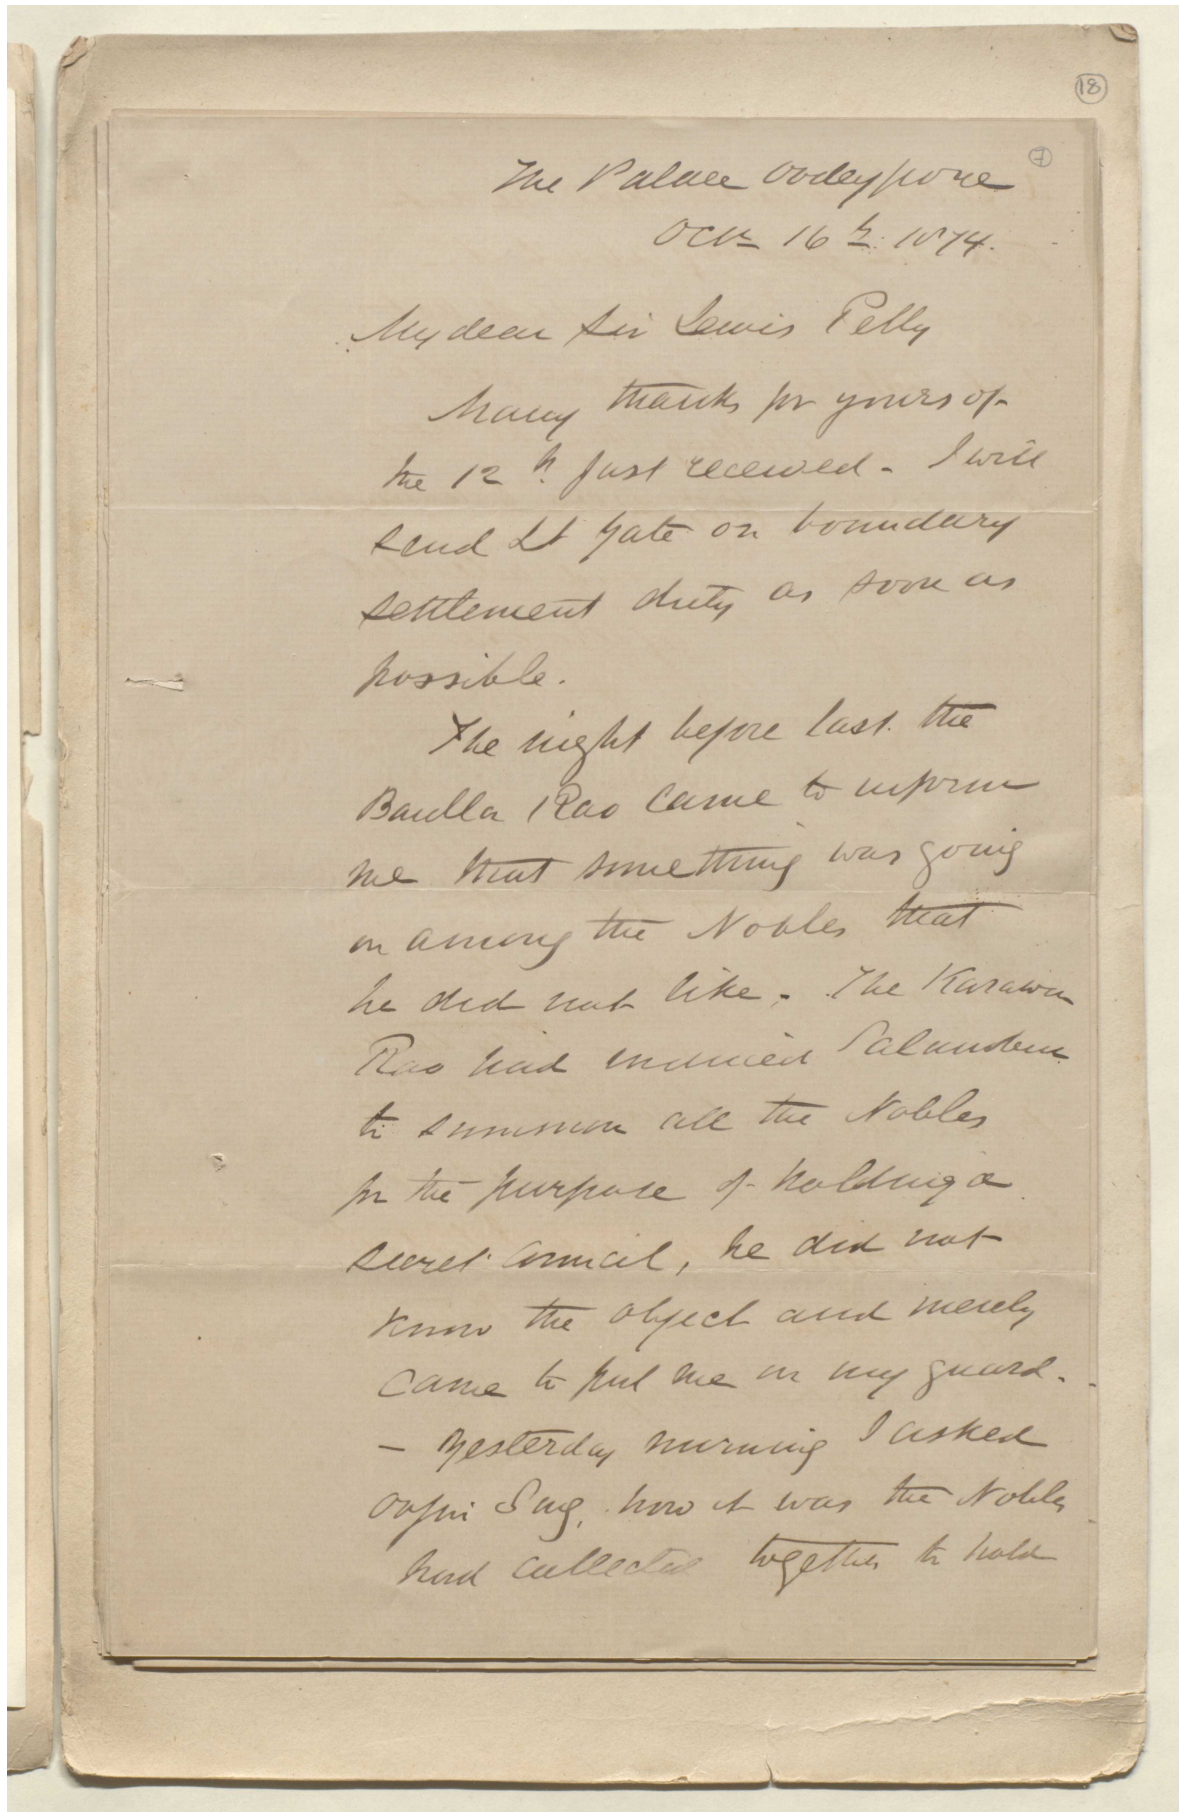 18
7
The Palace Oodeypore
Octr 16th 1874.
My dear Sir Lewis Pelly
Many thanks for yours of
the 12th. just received - I will
send Lt Yate on boundary
settlement duty as soon as
possible.
The night before last the
Rao came to inform
me that something was going
on among the Nobles that
he did not like. The
Rao had induced
to summon all the Nobles
for the purpose of holding a
secret council, he did not
know the object and merely
came to put me on my guard.
- Yesterday morning I asked
Sing, how it was the Nobles
had collected together to hold